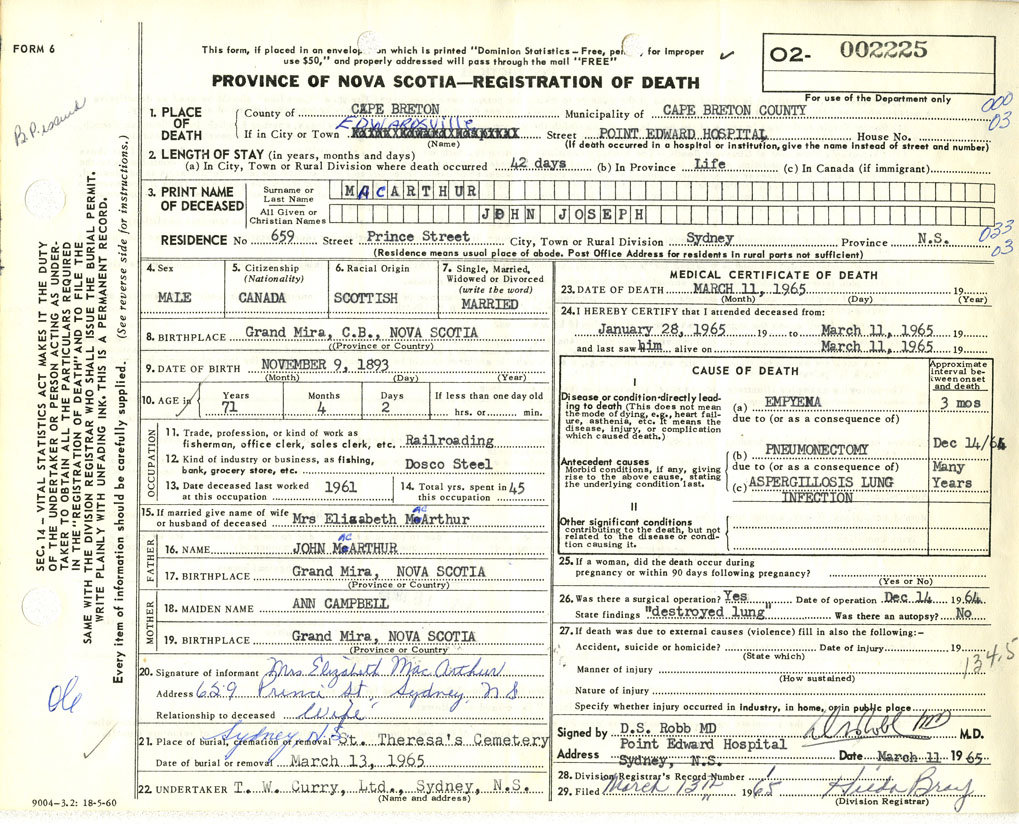 FORM 6
This form, if placed in an envelop on which is printed "Dominion Statistics – Free, pen for Improper
use $50," and properly addressed will pass through the mail "FREE"
PROVINCE OF NOVA SCOTIA—REGISTRATION OF DEATH
O2- 002225
For use of the Department only
B.P. issued
000
03
1. PLACE OF DEATH
County of CAPE BRETON Municipality of CAPE BRETON COUNTY
If in City or Town Edwardsville Street POINT EDWARD HOSPITAL House No.
(Name) (If death occurred in a hospital or institution, give the name instead of street and number)
2. LENGTH OF STAY (in years, months and days)
(a) In City, Town or Rural Division where death occurred 42 days (b) In Province Life (c) In Canada (if immigrant)
3. PRINT NAME OF DECEASED
Surname or Last Name MACARTHUR
All Given or Christian Names JOHN JOSEPH
033
03
RESIDENCE No 659 Street Prince Street City, Town or Rural Division Sydney Province N.S.
(Residence means usual place of abode. Post Office Address for residents in rural parts not sufficient)
4. Sex
MALE
5. Citizenship (Nationality)
CANADA
6. Racial Origin
SCOTTISH
7. Single, Married, Widowed or Divorced (write the word)
MARRIED
8. BIRTHPLACE Grand Mira, C.B., NOVA SCOTIA
(Province or Country)
9. DATE OF BIRTH NOVEMBER 9, 1893
(Month) (Day) (Year)
10. AGE in Years 71 Months 4 Days 2 If less than one day old hrs. or min.
OCCUPATION
11. Trade, profession, or kind of work as
fisherman, office clerk, sales clerk, etc. Railroading
12. Kind of industry or business, as fishing,
bank, grocery store, etc. Dosco Steel
13. Date deceased last worked at this occupation 1961
14. Total yrs. spent in this occupation 45
15. If married give name of wife
or husband of deceased Mrs Elizabeth MacArthur
FATHER
16. NAME JOHN MacARTHUR
17. BIRTHPLACE Grand Mira, NOVA SCOTIA
(Province or Country)
MOTHER
18. MAIDEN NAME ANN CAMPBELL
19. BIRTHPLACE Grand Mira, NOVA SCOTIA
(Province or Country)
20. Signature of informant Mrs. Elizabeth MacArthur
Address 659 Prince St, Sydney, N S
Relationship to deceased Wife
Sydney N.S
21. Place of burial, cremation or removal St. Theresa's Cemetery
Date of burial or removal March 13, 1965
22. UNDERTAKER T. W. Curry, Ltd., Sydney, N.S.
(Name and address)
MEDICAL CERTIFICATE OF DEATH
23. DATE OF DEATH MARCH 11, 1965 19
(Month) (Day) (Year)
24. I HEREBY CERTIFY that I attended deceased from:
January 28, 1965 19 to March 11, 1965 19
and last saw him alive on March 11, 1965 19
CAUSE OF DEATH
Approximate interval between onset and death
I
Disease or condition directly leading to death (This does not mean the mode of dying, e.g., heart failure, asthenia, etc. It means the disease, injury, or complication which caused death.)
(a) EMPYEMA 3 mos
due to (or as a consequence of)
Antecedent causes
Morbid conditions, if any, giving rise to the above cause, stating the underlying condition last.
(b) PNEUMONECTOMY Dec 14/64
due to (or as a consequence of)
(c) ASPERGILLOSIS LUNG INFECTION Many Years
II
Other significant conditions
contributing to the death, but not related to the disease or condition causing it.
25. If a woman, did the death occur during
pregnancy or within 90 days following pregnancy?
(Yes or No)
26. Was there a surgical operation? Yes Date of operation Dec 14 1964
State findings "destroyed lung" Was there an autopsy? No
27. If death was due to external causes (violence) fill in also the following:–
Accident, suicide or homicide? Date of injury 19
(State which)
1345
Manner of injury
(How sustained)
Nature of injury
Specify whether injury occurred in industry, in home, or in public place
Signed by D.S. Robb MD D.S. Robb MD M.D.
Address Point Edward Hospital
Sydney, N.S. Date March 11 1965
28. Division Registrar's Record Number 1
29. Filed March 13th 1965 Hilda Bray
(Division Registrar)
SEC. 14 – VITAL STATISTICS ACT MAKES IT THE DUTY
OF THE UNDERTAKER OR PERSON ACTING AS UNDER-
TAKER TO OBTAIN ALL THE PARTICULARS REQUIRED
IN THE "REGISTRATION OF DEATH" AND TO FILE THE
SAME WITH THE DIVISION REGISTRAR WHO SHALL ISSUE THE BURIAL PERMIT.
WRITE PLAINLY WITH UNFADING INK. THIS IS A PERMANENT RECORD.
Every item of information should be carefully supplied. (See reverse side for instructions.)
9004–3.2: 18-5-60